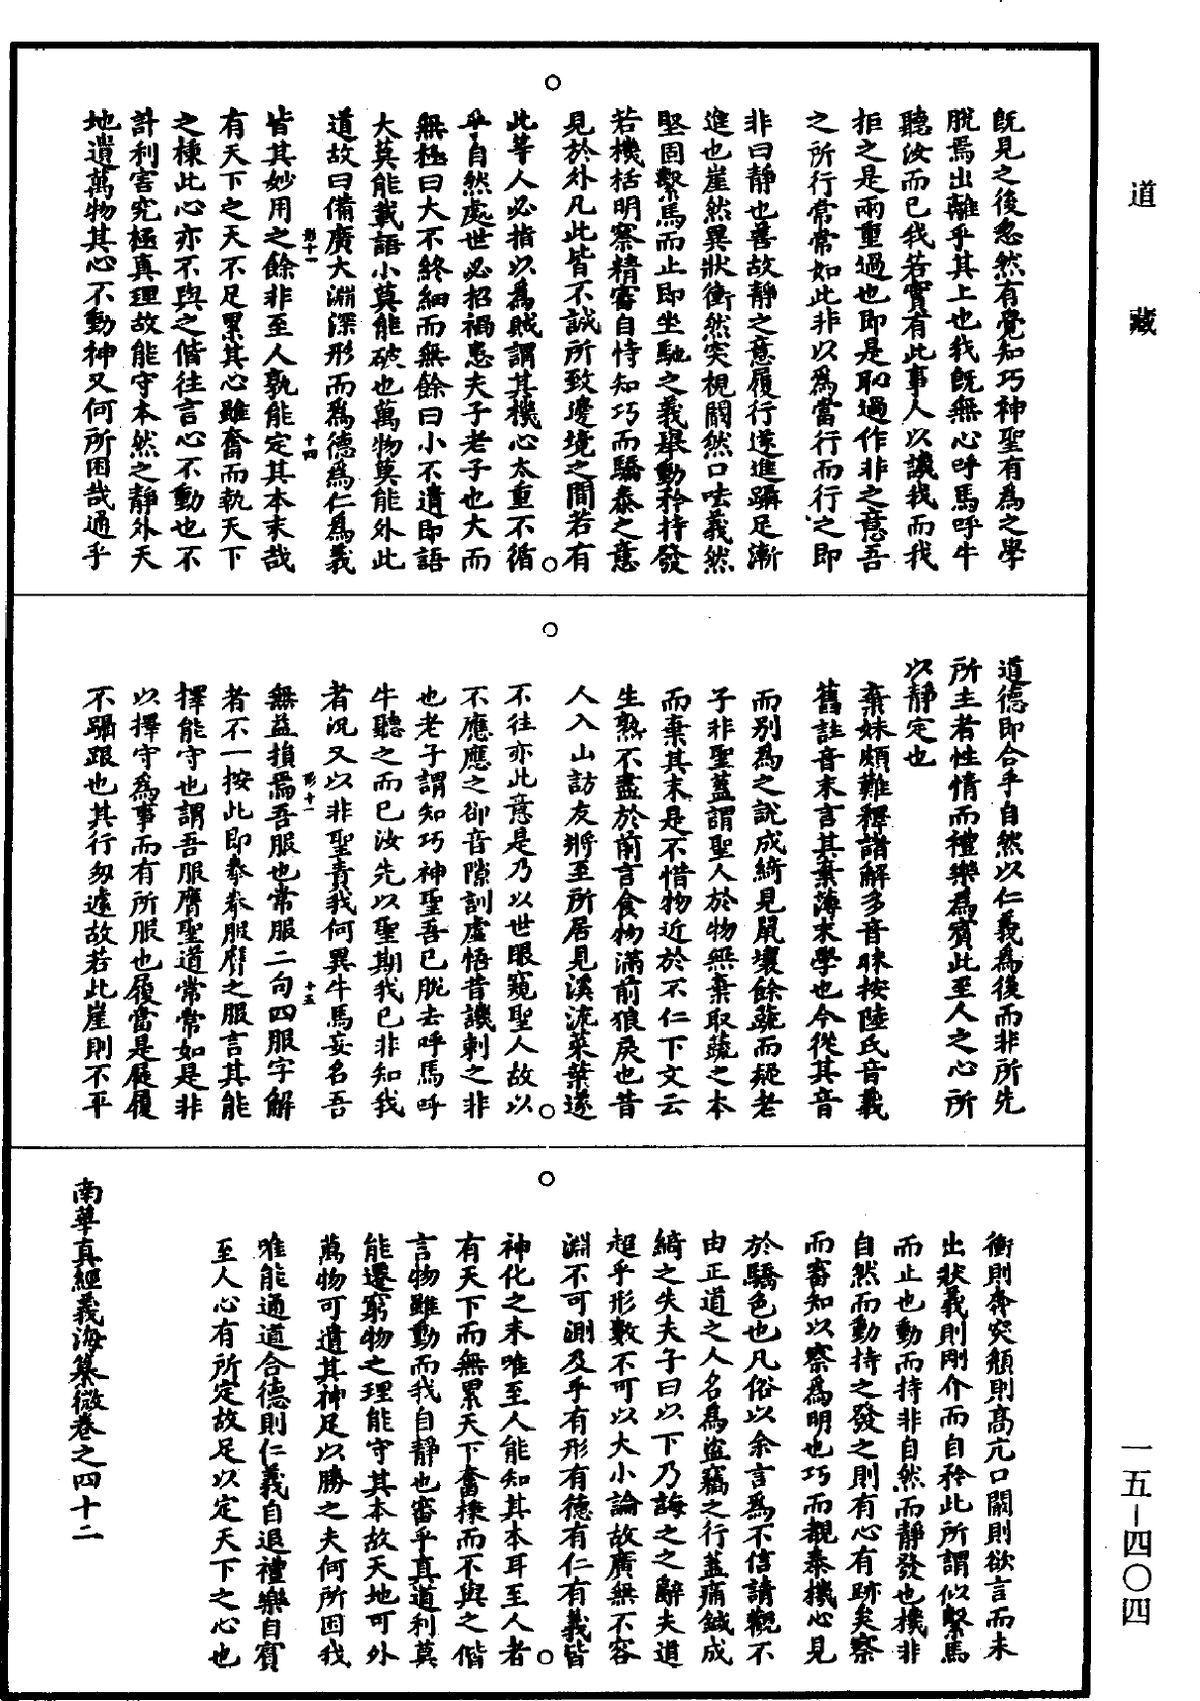 道藏
既見之後忽然有覺知巧神聖有為之學
脫焉出離乎其上也我既無心呼馬呼牛
聽汝而已我若實有此事人以議我而我
拒之是兩重過也即是恥過作非之意吾
之所行常常如此非以為當行而行之即
非曰靜也善故靜之意履行遂進躡足漸
進也崖然異狀衝然突視闞然口呿義然
堅固繫馬而止即坐馳之義舉動矜持發
若機栝明察精審自恃知巧而驕泰之意
見於外凡此皆不誠所致邊境之間若有
此等人必指以為賊謂其機心太重不循
乎自然處世必招禍患夫子老子也大而
無極曰大不終細而無餘曰小不遺即語
大莫能載語小莫能破也萬物莫能外此
道故曰備廣大淵深形而為德為仁為義
彩十一
十四
皆其妙用之餘非至人孰能定其本末哉
有天下之天不足累其心雖奮而執天下
之棅此心亦不與之偕往言心不動也不
計利害究極真理故能守本然之靜外天
地遺萬物其心不動神又何所困哉通乎
道德即合乎自然以仁義為後而非所先
所主者性情而禮樂為賓此至人之心所
以靜定也
棄妹頗難釋諸解多音昧按陸氏音義
舊註音末言其棄薄末學也今從其音
而別為之說成綺見鼠壤餘蔬而疑老
子非聖蓋謂聖人於物無棄取蔬之本
而棄其末是不惜物近於不仁下文云
生熟不盡於前言食物滿前狼戾也昔
人入山訪友將至所居見溪流菜葉遂
不往亦此意是乃以世眼窺聖人故以
不應應之卻音隙訓虛悟昔譏刺之非
也老子謂知巧神聖吾已脫去呼馬呼
牛聽之而已汝先以聖期我已非知我
者況又以非聖責我何異牛馬妄名吾
彩十一
十五
無益損焉吾服也常服二句四服字解
者不一按此即拳拳服膺之服言其能
擇能守也謂吾服膺聖道常常如是非
以擇守為事而有所服也履當是屣履
不躡跟也其行匆遽故若此崖則不平
衝則奔突頯則高亢口闞則欲言而未
出狀義則剛介而自矜此所謂似繫馬
而止也動而持非自然而靜發也機非
自然而動持之發之則有心有跡矣察
而審知以察為明也巧而覩泰機心見
於驕色也凡俗以余言為不信請觀不
由正道之人名為盜竊之行蓋痛鍼成
綺之失夫子曰以下乃誨之之辭夫道
超乎形數不可以大小論故廣無不容
淵不可測及乎有形有德有仁有義皆
神化之末唯至人能知其本耳至人者
有天下而無累天下奮棅而不與之偕
言物雖動而我自靜也審乎真道利莫
能遷窮物之理能守其本故天地可外
萬物可遺其神足以勝之夫何所困哉
唯能通道合德則仁義自退禮樂自賓
至人心有所定故足以定天下之心也
南華真經義海纂微卷之四十二
一五-四〇四